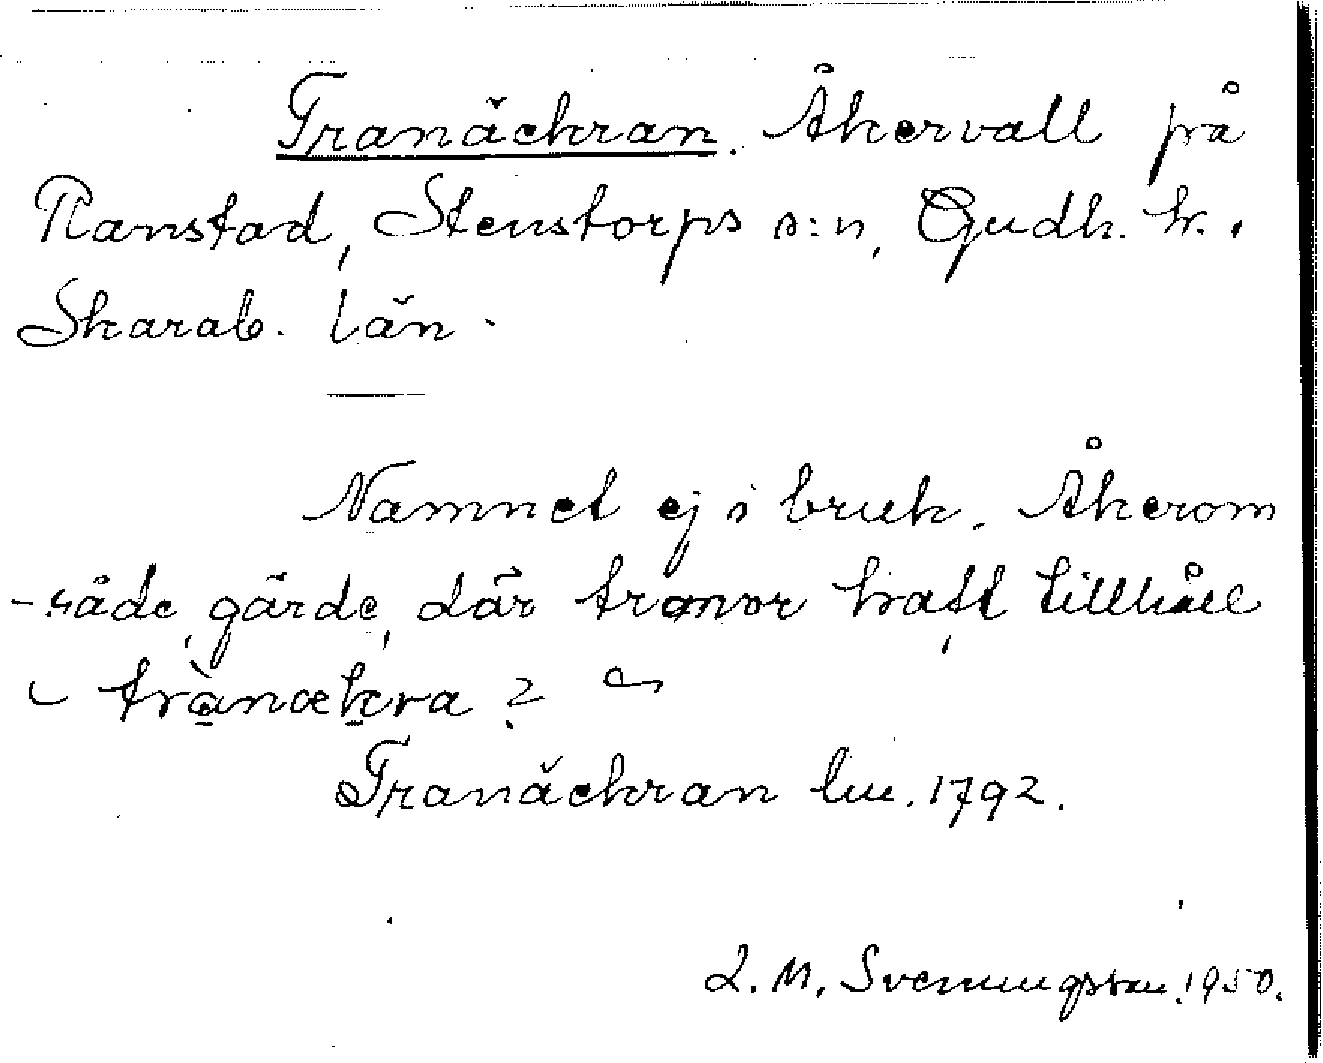 Tranäckran. Åkervall på
Ranstad, Stenstorps s:n, Gudh. hr.,
Skarab. län.
Namnet ej i bruk. Åkerom
-råde, gärde, där tranor haft tillhåll
trànækra ?
Tranäckran lm. 1792.
L. M. Svenungsson. 1950.